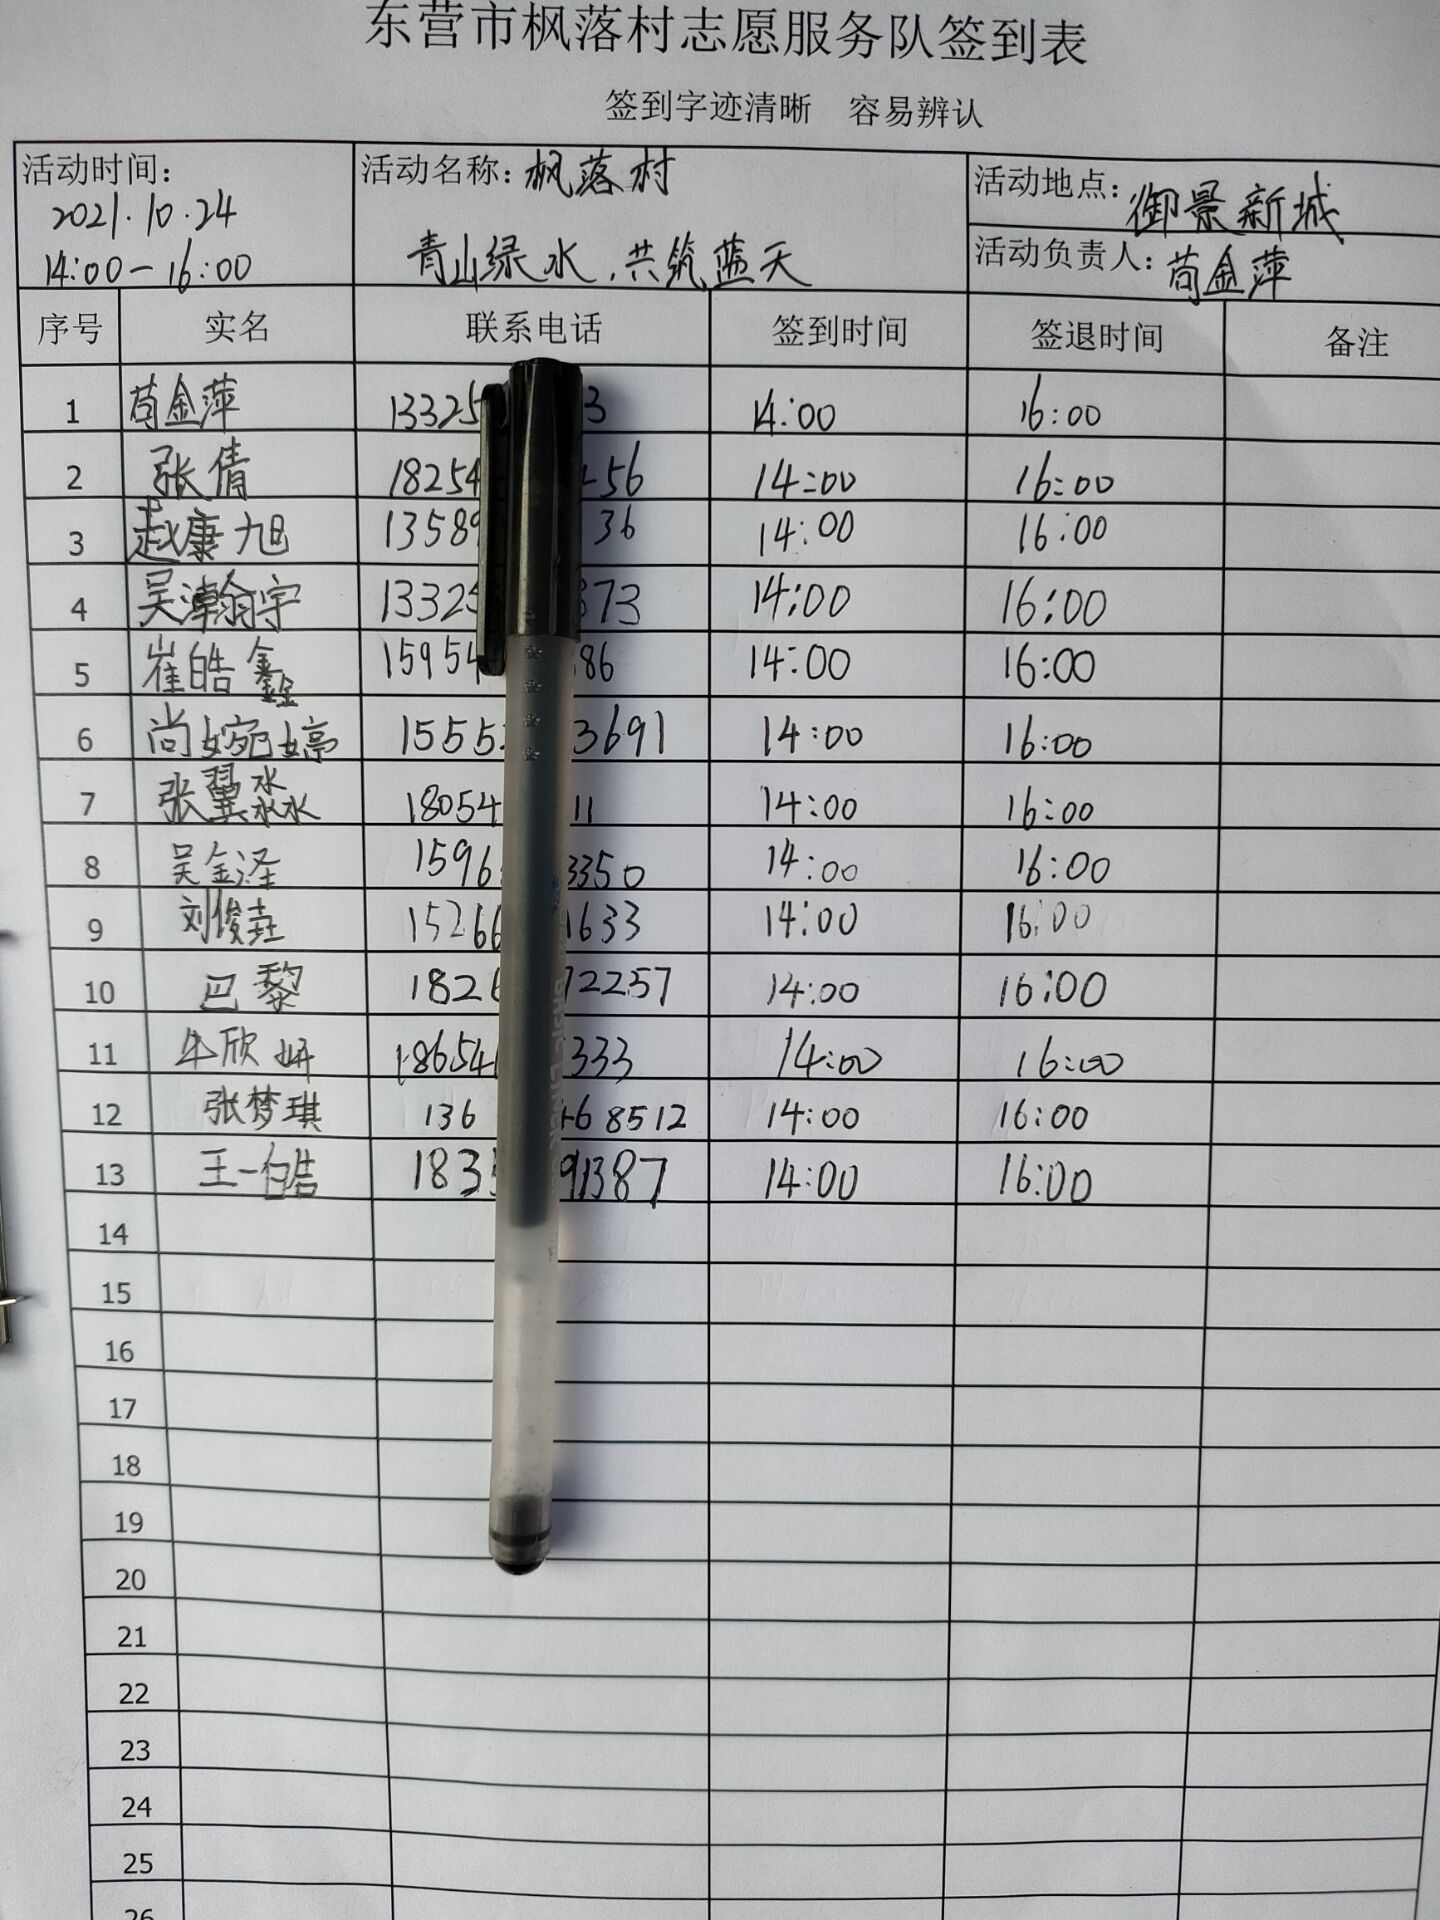 东营市枫落村志愿服务队签到表
签到字迹清晰 容易辨认
活动时间: 活动名称: 枫落村 活动地点: 御景新城
2021.10.24
14:00-16:00 青山绿水,共筑蓝天 活动负责人: 苟金萍
序号 实名 联系电话 签到时间 签退时间 备注
1 苟金萍 13325 3 14:00 16:00
2 张倩 18254 56 14:00 16:00
3 赵康旭 13589 36 14:00 16:00
4 吴瀚宇 1332 873 14:00 16:00
5 崔皓鑫 15954 86 14:00 16:00
6 尚婉婷 1555 3691 14:00 16:00
7 张翼淼 18054 11 14:00 16:00
8 吴金泽 1596 3350 14:00 16:00
9 刘俊垚 15266 1633 14:00 16:00
10 巴黎 1826 72257 14:00 16:00
11 牛欣妍 18654 333 14:00 16:00
12 张梦琪 136 468512 14:00 16:00
13 王一皓 183 91387 14:00 16:00
14
15
16
17
18
19
20
21
22
23
24
25
26